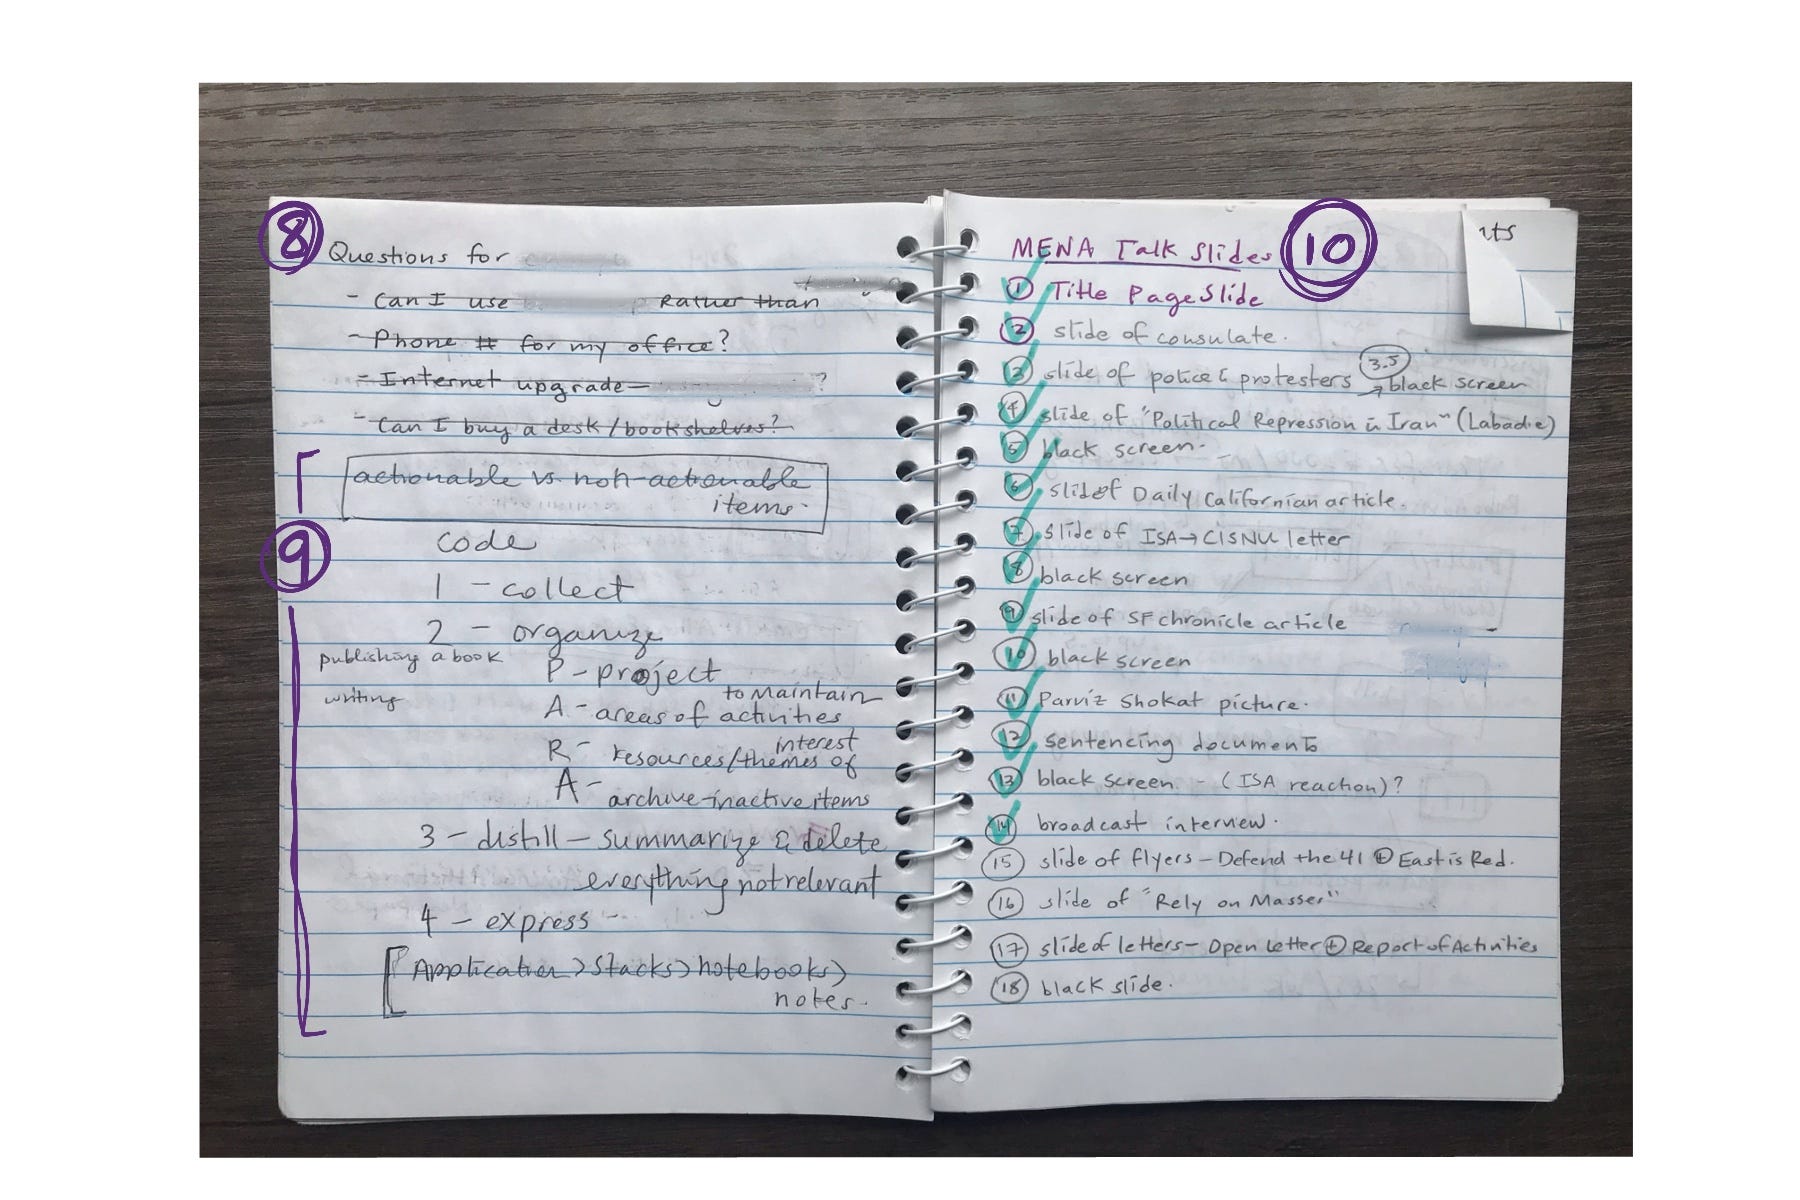 8
Questions for
- Can I use Rather than
- Phone # for my office?
- Internet upgrade— ?
- Can I buy a desk/bookshelves?
actionable vs. non-actionable
items.
9
code
1 - collect
2 - organize
publishing a book
P - project
writing
to maintain
A - areas of activities
interest
R - resources/themes of
A - archive-inactive items
3 - distill - summarize & delete
everything not relevant
4 - express -
Application > Stacks > notebooks >
notes.
10
MENA Talk Slides
1 Title Page Slide
2 slide of consulate.
3 slide of police & protesters 3.5 → black screen
4 slide of "Political Repression in Iran" (Labadie)
5 black screen.
6 slide of Daily Californian article.
7 slide of ISA → CISNU letter
8 black screen
9 slide of SF chronicle article
10 black screen
11 Parviz Shokat picture.
12 sentencing documents
13 black screen - (ISA reaction)?
14 broadcast interview.
15 slide of flyers - Defend the 41 + East is Red.
16 slide of "Rely on Masses"
17 slide of letters - Open Letter + Report of Activities
18 black slide.
nts